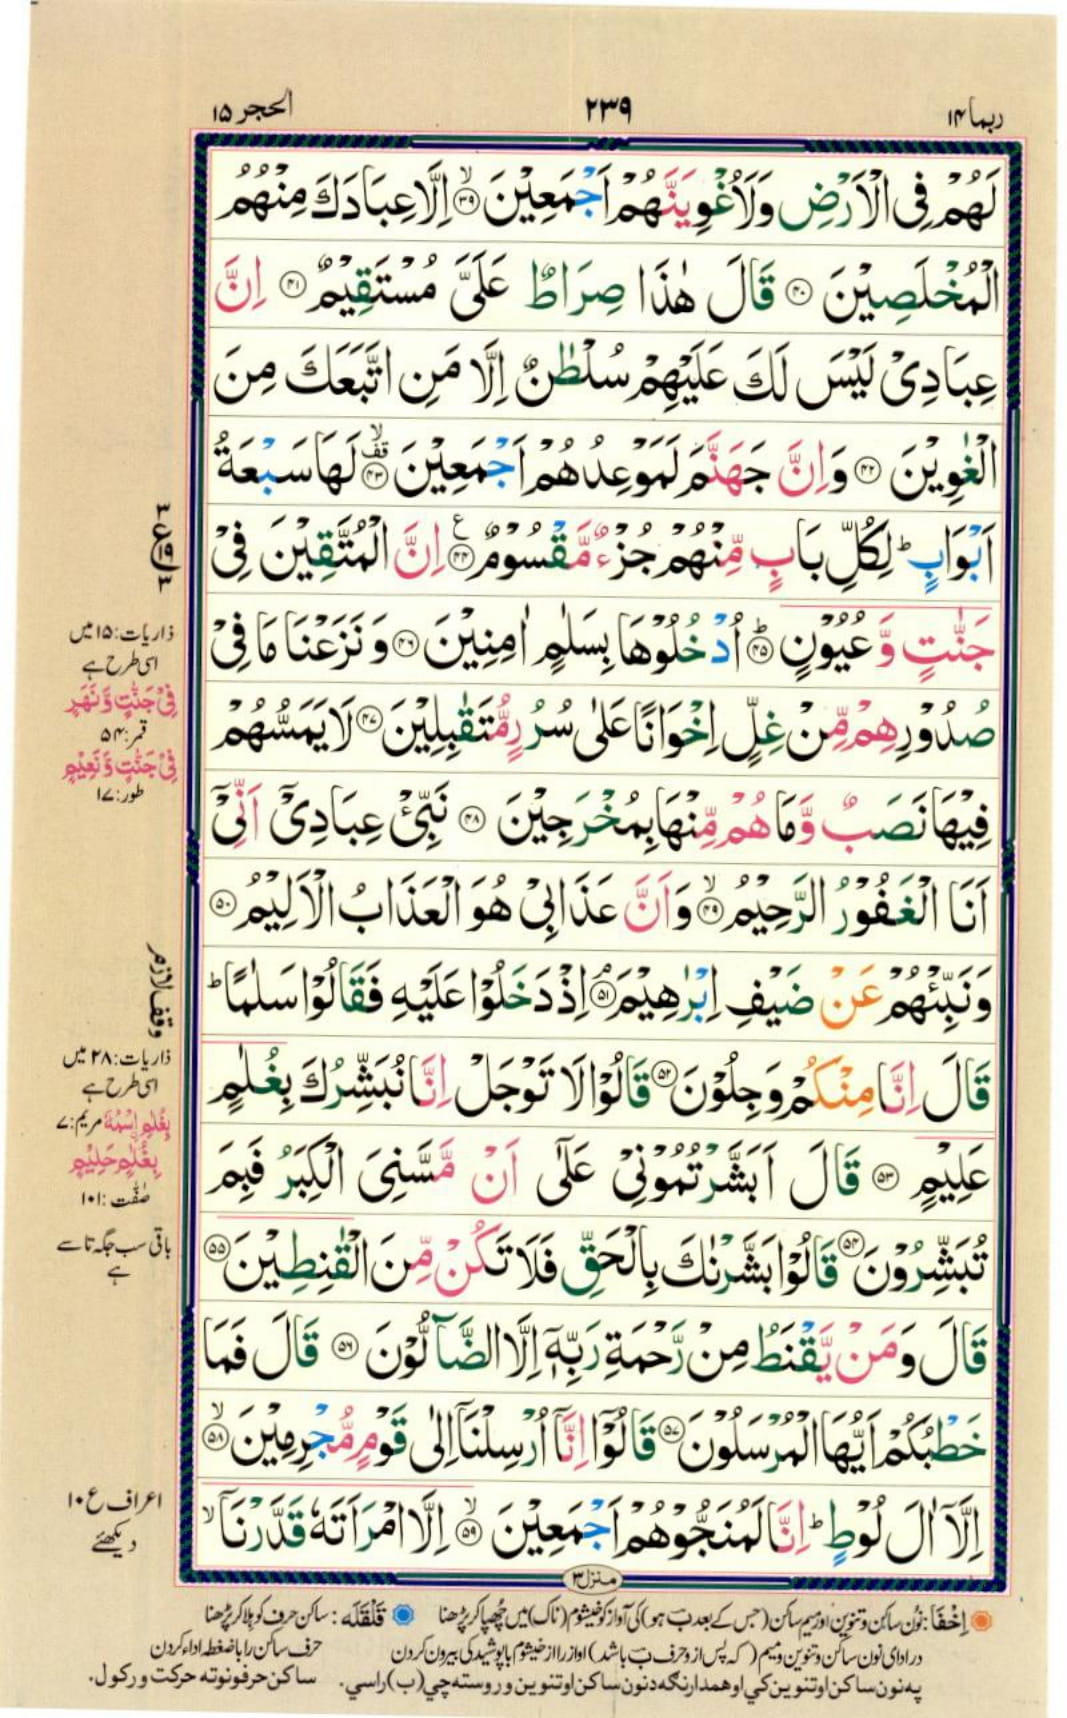 ربما ١٤
٢٣٩
الحجر ١٥
لَهُمْ فِی الْاَرْضِ وَلَاُغْوِیَنَّهُمْ اَجْمَعِیْنَ ۙ﴿۳۹﴾ اِلَّا عِبَادَكَ مِنْهُمُ
الْمُخْلَصِیْنَ ﴿۴۰﴾ قَالَ هٰذَا صِرَاطٌ عَلَیَّ مُسْتَقِیْمٌ ﴿۴۱﴾ اِنَّ
عِبَادِیْ لَیْسَ لَكَ عَلَیْهِمْ سُلْطٰنٌ اِلَّا مَنِ اتَّبَعَكَ مِنَ
الْغٰوِیْنَ ﴿۴۲﴾ وَاِنَّ جَهَنَّمَ لَمَوْعِدُهُمْ اَجْمَعِیْنَ ۙ۫﴿۴۳﴾ لَهَا سَبْعَةُ
اَبْوَابٍ ؕ لِكُلِّ بَابٍ مِّنْهُمْ جُزْءٌ مَّقْسُوْمٌ ﴿۴۴﴾ع اِنَّ الْمُتَّقِیْنَ فِیْ
جَنّٰتٍ وَّعُیُوْنٍ ؕ﴿۴۵﴾ اُدْخُلُوْهَا بِسَلٰمٍ اٰمِنِیْنَ ﴿۴۶﴾ وَنَزَعْنَا مَا فِیْ
صُدُوْرِهِمْ مِّنْ غِلٍّ اِخْوَانًا عَلٰی سُرُرٍ مُّتَقٰبِلِیْنَ ﴿۴۷﴾ لَا یَمَسُّهُمْ
فِیْهَا نَصَبٌ وَّمَا هُمْ مِّنْهَا بِمُخْرَجِیْنَ ﴿۴۸﴾ نَبِّئْ عِبَادِیْۤ اَنِّیْۤ
اَنَا الْغَفُوْرُ الرَّحِیْمُ ۙ﴿۴۹﴾ وَاَنَّ عَذَابِیْ هُوَ الْعَذَابُ الْاَلِیْمُ ﴿۵۰﴾
وَنَبِّئْهُمْ عَنْ ضَیْفِ اِبْرٰهِیْمَ ۘ﴿۵۱﴾ اِذْ دَخَلُوْا عَلَیْهِ فَقَالُوْا سَلٰمًا ؕ
قَالَ اِنَّا مِنْكُمْ وَجِلُوْنَ ﴿۵۲﴾ قَالُوْا لَا تَوْجَلْ اِنَّا نُبَشِّرُكَ بِغُلٰمٍ
عَلِیْمٍ ﴿۵۳﴾ قَالَ اَبَشَّرْتُمُوْنِیْ عَلٰۤی اَنْ مَّسَّنِیَ الْكِبَرُ فَبِمَ
تُبَشِّرُوْنَ ﴿۵۴﴾ قَالُوْا بَشَّرْنٰكَ بِالْحَقِّ فَلَا تَكُنْ مِّنَ الْقٰنِطِیْنَ ﴿۵۵﴾
قَالَ وَمَنْ یَّقْنَطُ مِنْ رَّحْمَةِ رَبِّهٖۤ اِلَّا الضَّآلُّوْنَ ﴿۵۶﴾ قَالَ فَمَا
خَطْبُكُمْ اَیُّهَا الْمُرْسَلُوْنَ ﴿۵۷﴾ قَالُوْۤا اِنَّاۤ اُرْسِلْنَاۤ اِلٰی قَوْمٍ مُّجْرِمِیْنَ ۙ﴿۵۸﴾
اِلَّاۤ اٰلَ لُوْطٍ ؕ اِنَّا لَمُنَجُّوْهُمْ اَجْمَعِیْنَ ۙ﴿۵۹﴾ اِلَّا امْرَاَتَهٗ قَدَّرْنَاۤ ۙ
منزل ٣
٣
ع ١٩
٣
ذاریات: ١٥ میں
اسی طرح ہے
فِیْ جَنّٰتٍ وَّنَهَرٍ
قمر: ٥٤
فِیْ جَنّٰتٍ وَّنَعِیْمٍ
طور: ١٧
وقف لازم
ذاریات: ٢٨ میں
اسی طرح ہے
بِغُلٰمِ ِۨاسْمُهٗ مریم: ٧
بِغُلٰمٍ حَلِیْمٍ
صٰفّٰت: ١٠١
باقی سب جگہ تا سے
ہے
اعراف ع ١٠
دیکھئے
اِخْفَا: نون ساکن و تنوین اور میم ساکن (جس کے بعد ب ہو) کی آواز کو خیشوم (ناک) میں چھپا کر پڑھنا
قَلْقَلَه: ساکن حرف کو ہلا کر پڑھنا
در ادای نون ساکن و تنوین و میم (که پس از و حرف ب باشد) اواز را از خیشوم با پوشیدگی بیرون کردن
حرف ساکن را با ضغطه اداء کردن
په نون ساکن او تنوین کي او همدارنگه د نون ساکن او تنوین وروسته چي (ب) راسي.
ساکن حرفونو ته حرکت ورکول.